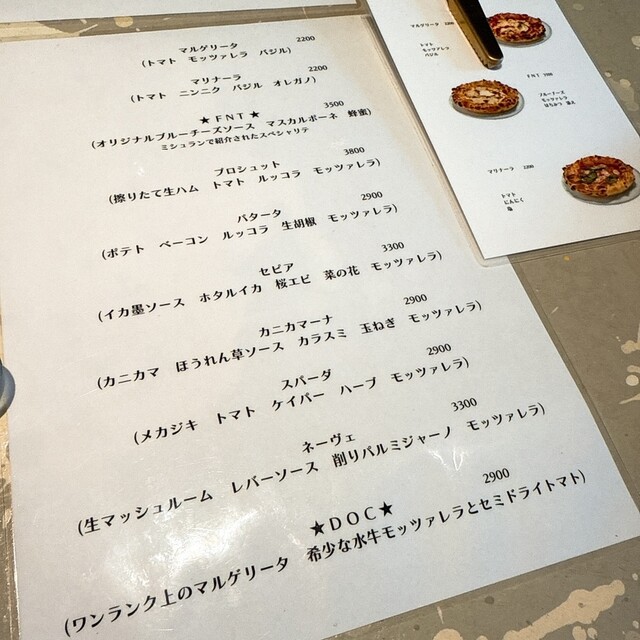 マルゲリータ 2200
(トマト モッツァレラ バジル)
マリナーラ 2200
(トマト ニンニク バジル オレガノ)
★FNT★ 3500
(オリジナルブルーチーズソース マスカルポーネ 蜂蜜)
ミシュランで紹介されたスペシャリテ
プロシュット 3800
(擦りたて生ハム トマト ルッコラ モッツァレラ)
パタータ 2900
(ポテト ベーコン ルッコラ 生胡椒 モッツァレラ)
セピア 3300
(イカ墨ソース ホタルイカ 桜エビ 菜の花 モッツァレラ)
カニカマーナ 2900
(カニカマ ほうれん草ソース カラスミ 玉ねぎ モッツァレラ)
スパーダ 2900
(メカジキ トマト ケイパー ハーブ モッツァレラ)
ネーヴェ 3300
(生マッシュルーム レバーソース 削りパルミジャーノ モッツァレラ)
★DOC★ 2900
(ワンランク上のマルゲリータ 希少な水牛モッツァレラとセミドライトマト)
マルゲリータ 2200
トマト
モッツァレラ
バジル
FNT
ブルーチーズ
モッツァレラ
はちみつ
マリナーラ 2200
トマト
にんにく